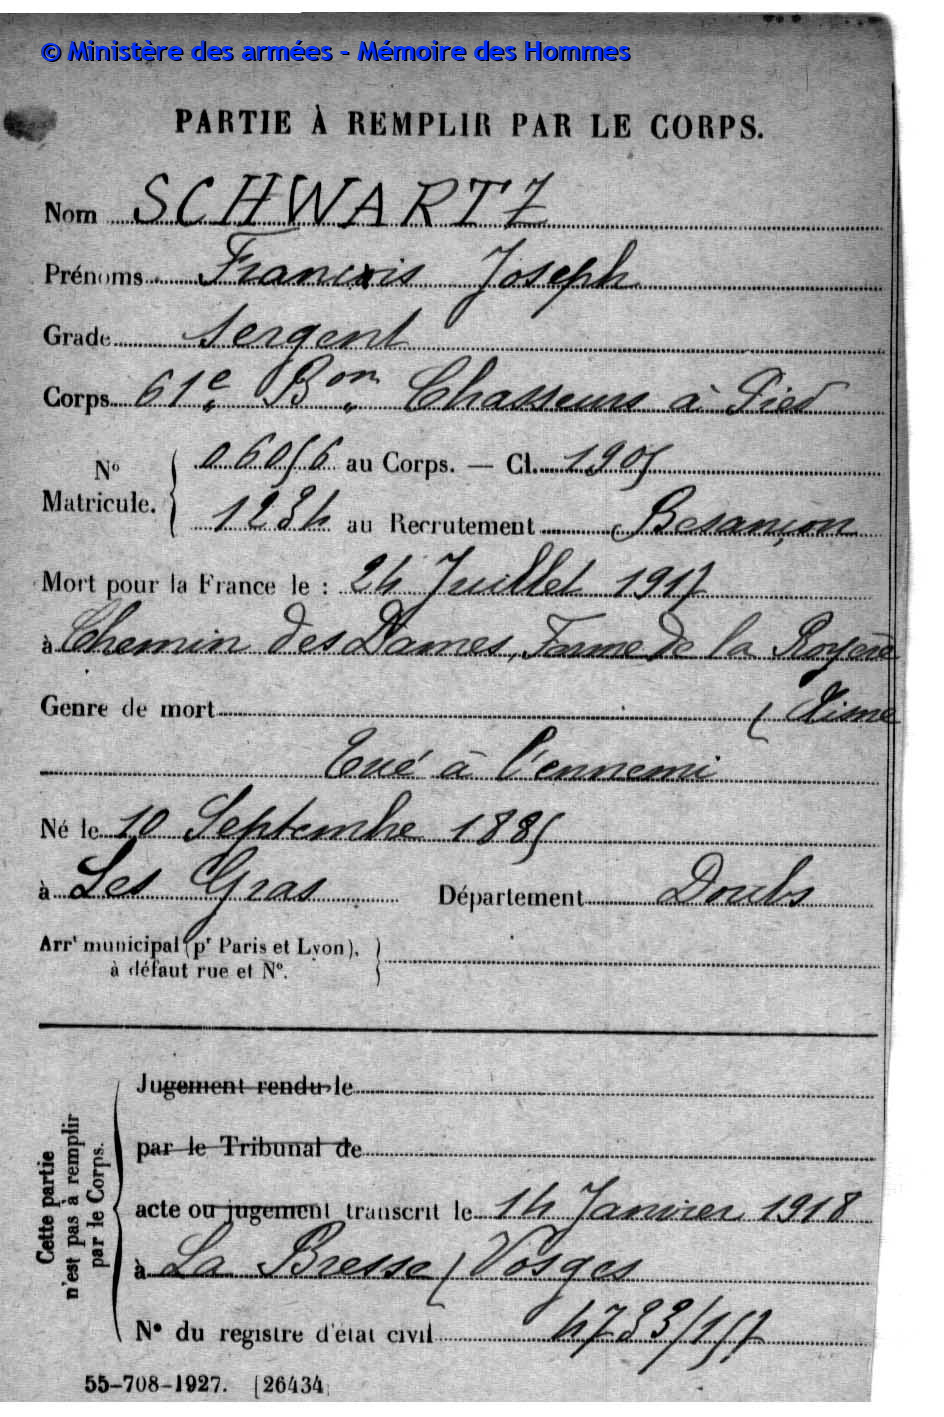 © Ministère des armées - Mémoire des Hommes
PARTIE À REMPLIR PAR LE CORPS.
Nom SCHWARTZ
Prénoms François Joseph
Grade Sergent
Corps 61e Bon Chasseurs à Pied
No Matricule. { 06056 au Corps. — Cl. 1905
1234 au Recrutement Besançon
Mort pour la France le : 24 Juillet 1917
à Chemin des Dames, Ferme de la Royère
Genre de mort (Aisne
Tué à l'ennemi
Né le 10 Septembre 1885
à Les Gras Département Doubs
Arrt municipal (pr Paris et Lyon),
à défaut rue et No.
Cette partie
n'est pas à remplir
par le Corps.
Jugement rendu le
par le Tribunal de
acte ou jugement transcrit le 14 Janvier 1918
à La Bresse (Vosges
No du registre d'état civil 4733/157
55-708-1927. [26434]